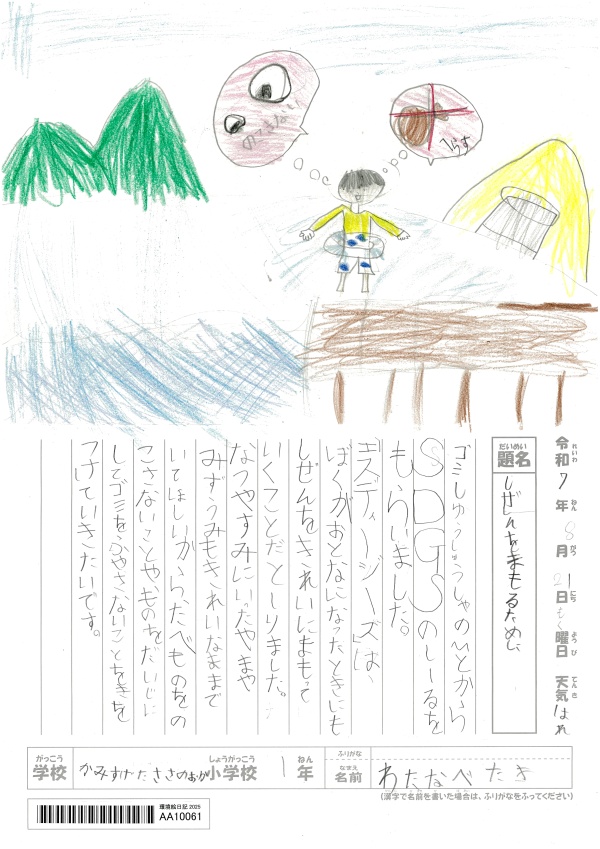 のこさない
へらす
れいわ
令和7年8月21日もく曜日 天気はれ
ねん がつ にち ようび てんき
だいめい
題名
しぜんをまもるために
ゴミしゅうしゅうしゃのひとから
SDGSのしーるを
もらいました。
「エスディージーズ」は、
ぼくがおとなになったときにも
しぜんをきれいにまもって
いくことだとしりました。
なつやすみにいったやまや
みずうみもきれいなままで
いてほしいから、たべものをの
こさないことや、ものをだいじに
してゴミをふやさないことをきを
つけていきたいです。
がっこう しょうがっこう ねん
学校 かみすけたささのおか小学校 1年
ふりがな
なまえ
名前 わたなべ たき
(漢字で名前を書いた場合は、ふりがなをふってください)
環境絵日記 2025
AA10061